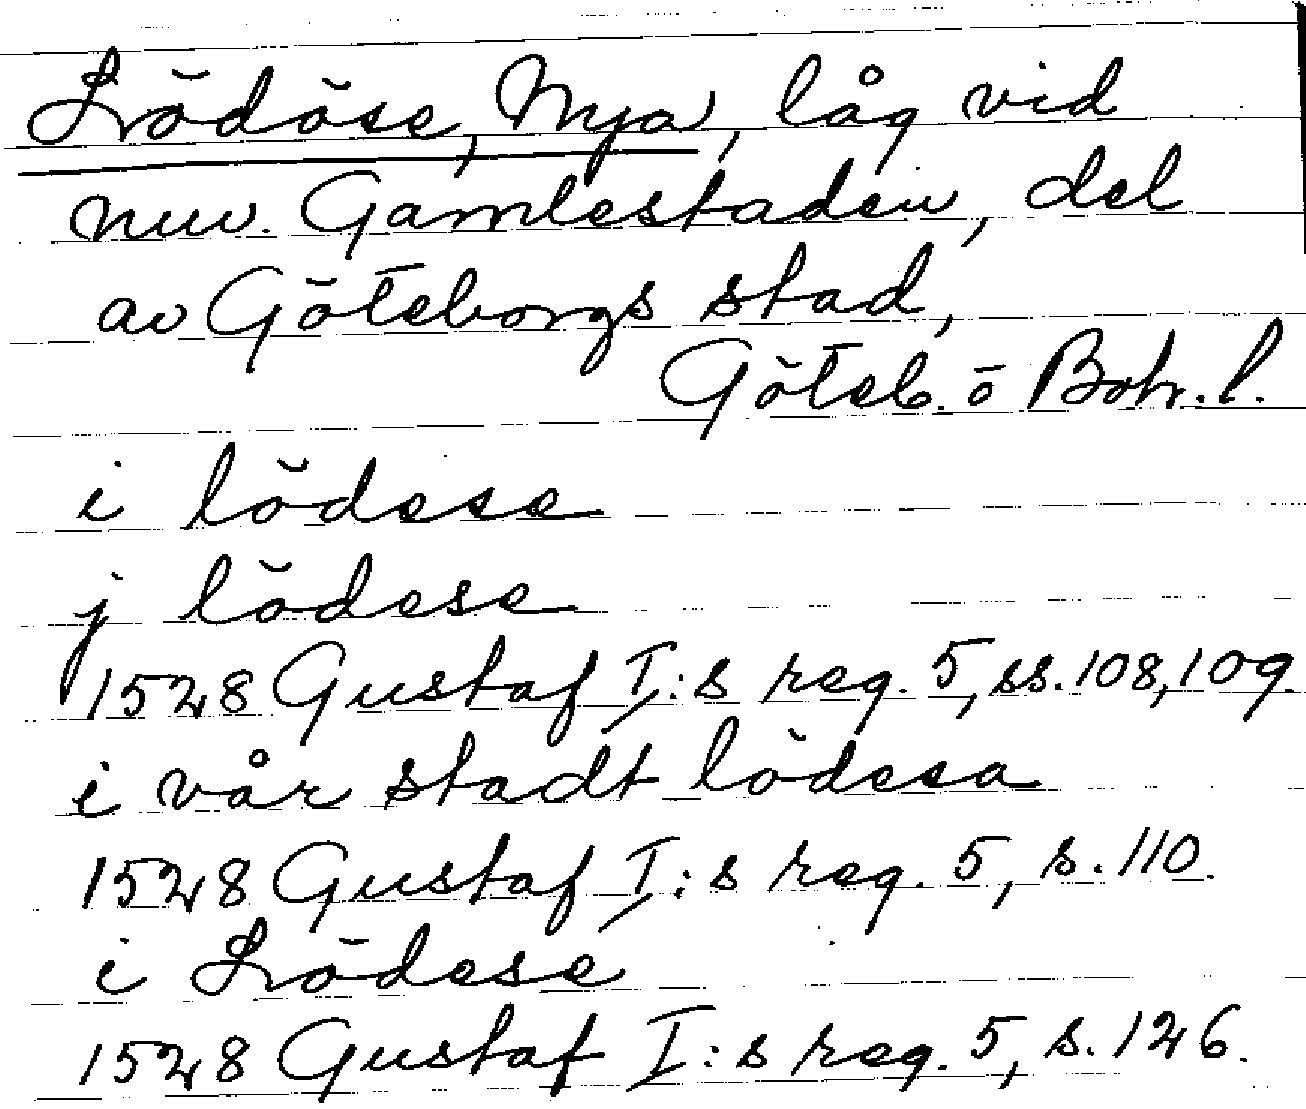 Lödöse, Nya, låg vid
nuv. Gamlestaden, del
av Göteborgs stad,
Göteb. o Boh. l.
i lödese
j lödese
1528 Gustaf I:s reg. 5, ss. 108, 109.
i vår stadt lödesa
1528 Gustaf I:s reg. 5, s. 110.
i Lödese
1528 Gustaf I:s reg. 5, s. 126.